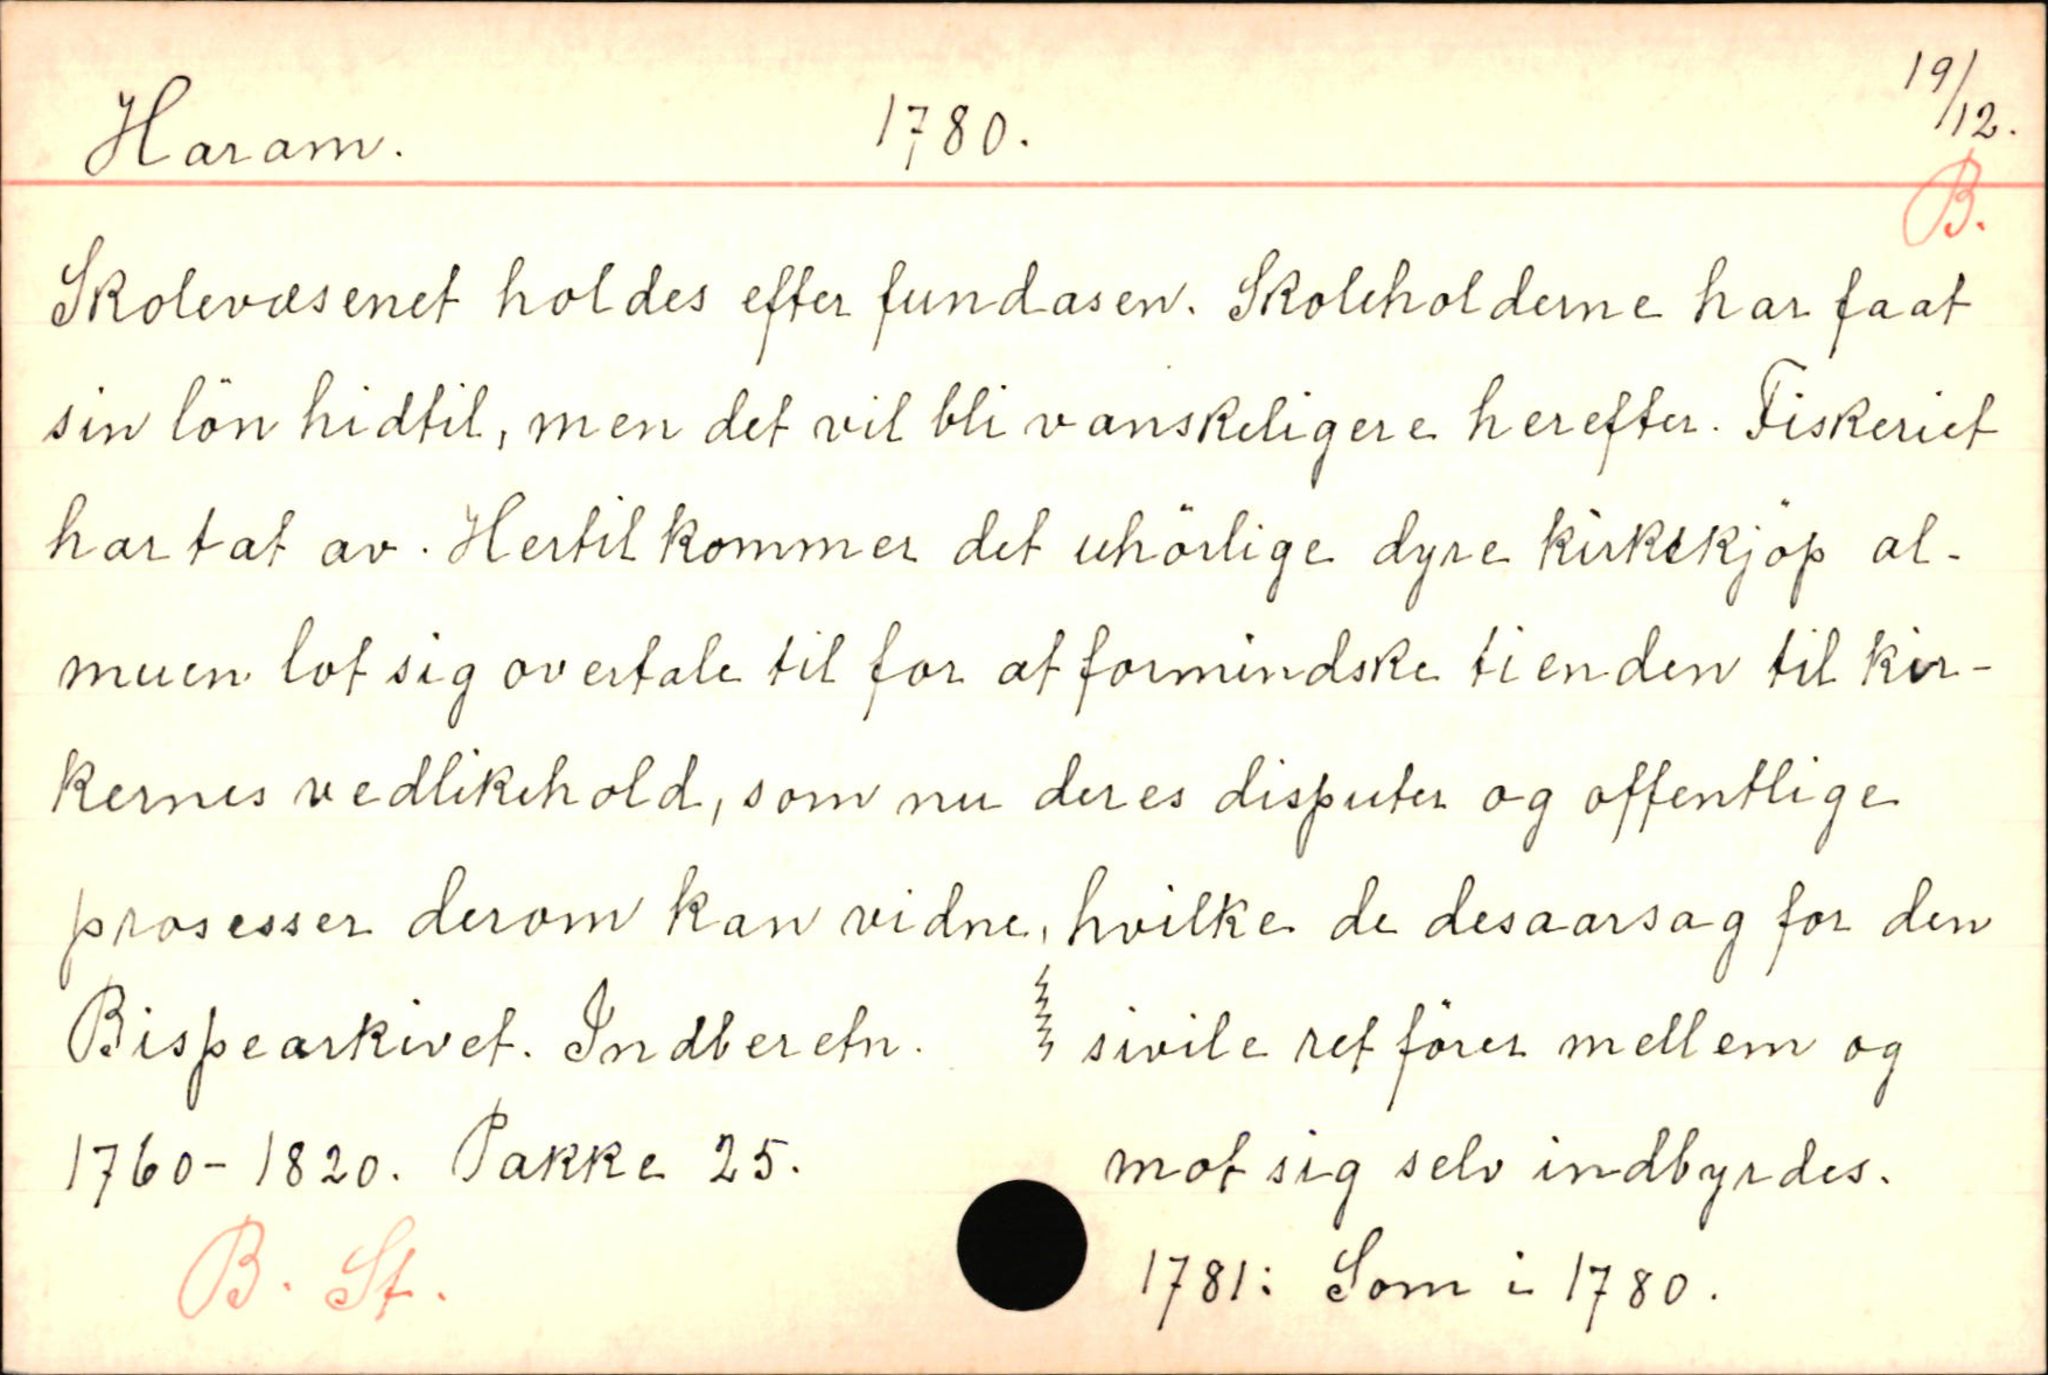 Haram. 1780. 19/12.
B.
Skolevæsenet holdes efter fundasen. Skoleholderne har faat
sin lön hidtil, men det vil bli vanskeligere herefter. Fiskeriet
har tat av. Hertil kommer det uhörlige dyre kirkekjöp al-
muen lot sig overtale til for at formindske tienden til kir-
kernes vedlikehold, som nu deres disputer og offentlige
prosesser derom kan vidne, hvilke de desaarsag for den
sivile ret förer mellem og
mot sig selv indbyrdes.
1781: Som i 1780.
Bispearkivet. Indberetn.
1760-1820. Pakke 25.
B. St.